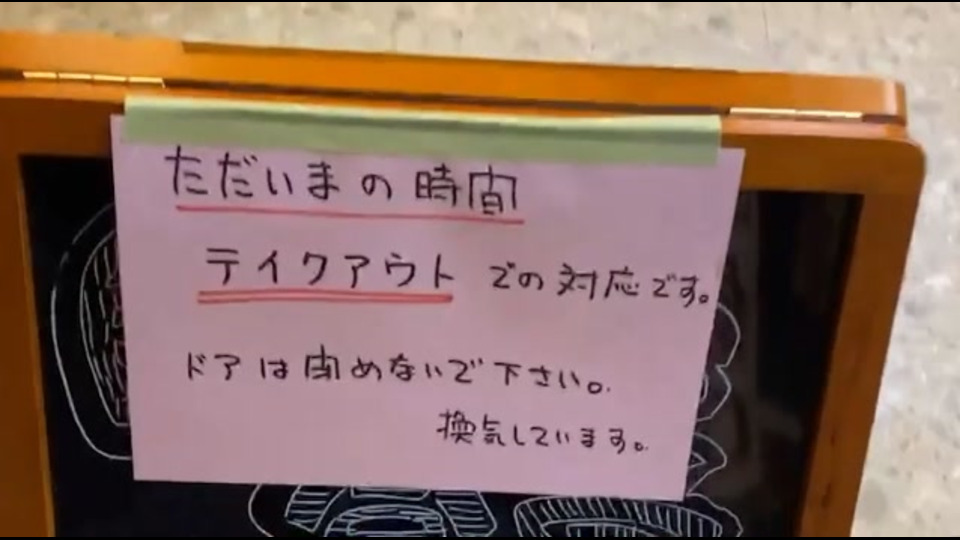 ただいまの時間
テイクアウト での対応です。
ドアは閉めないで下さい。
換気しています。